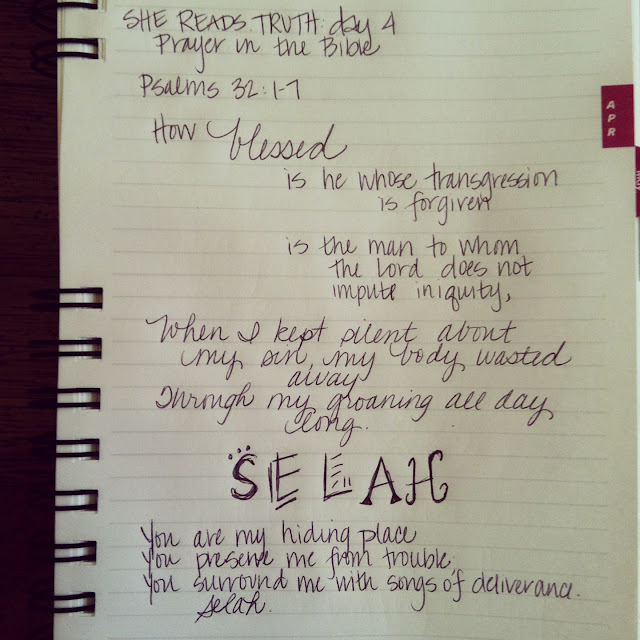 SHE READS TRUTH: day 4
Prayer in the Bible
Psalms 32:1-7
How blessed
is he whose transgression
is forgiven
is the man to whom
the Lord does not
impute iniquity,
When I kept silent about
my sin, my body wasted
away
Through my groaning all day
long.
SELAH
You are my hiding place
You preserve me from trouble,
You surround me with songs of deliverance.
Selah.
APR